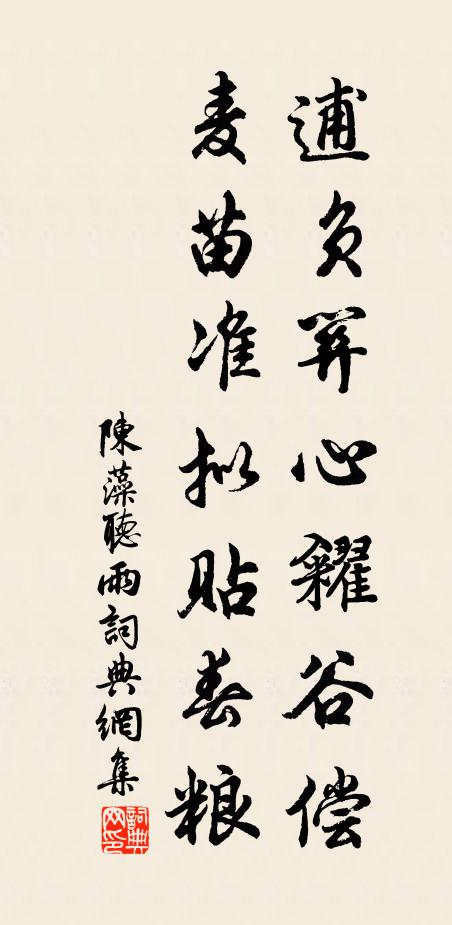 逋负關心糴谷偿
麦苗准拟貼春粮
陳藻聴雨詞典網集
詞典
网印